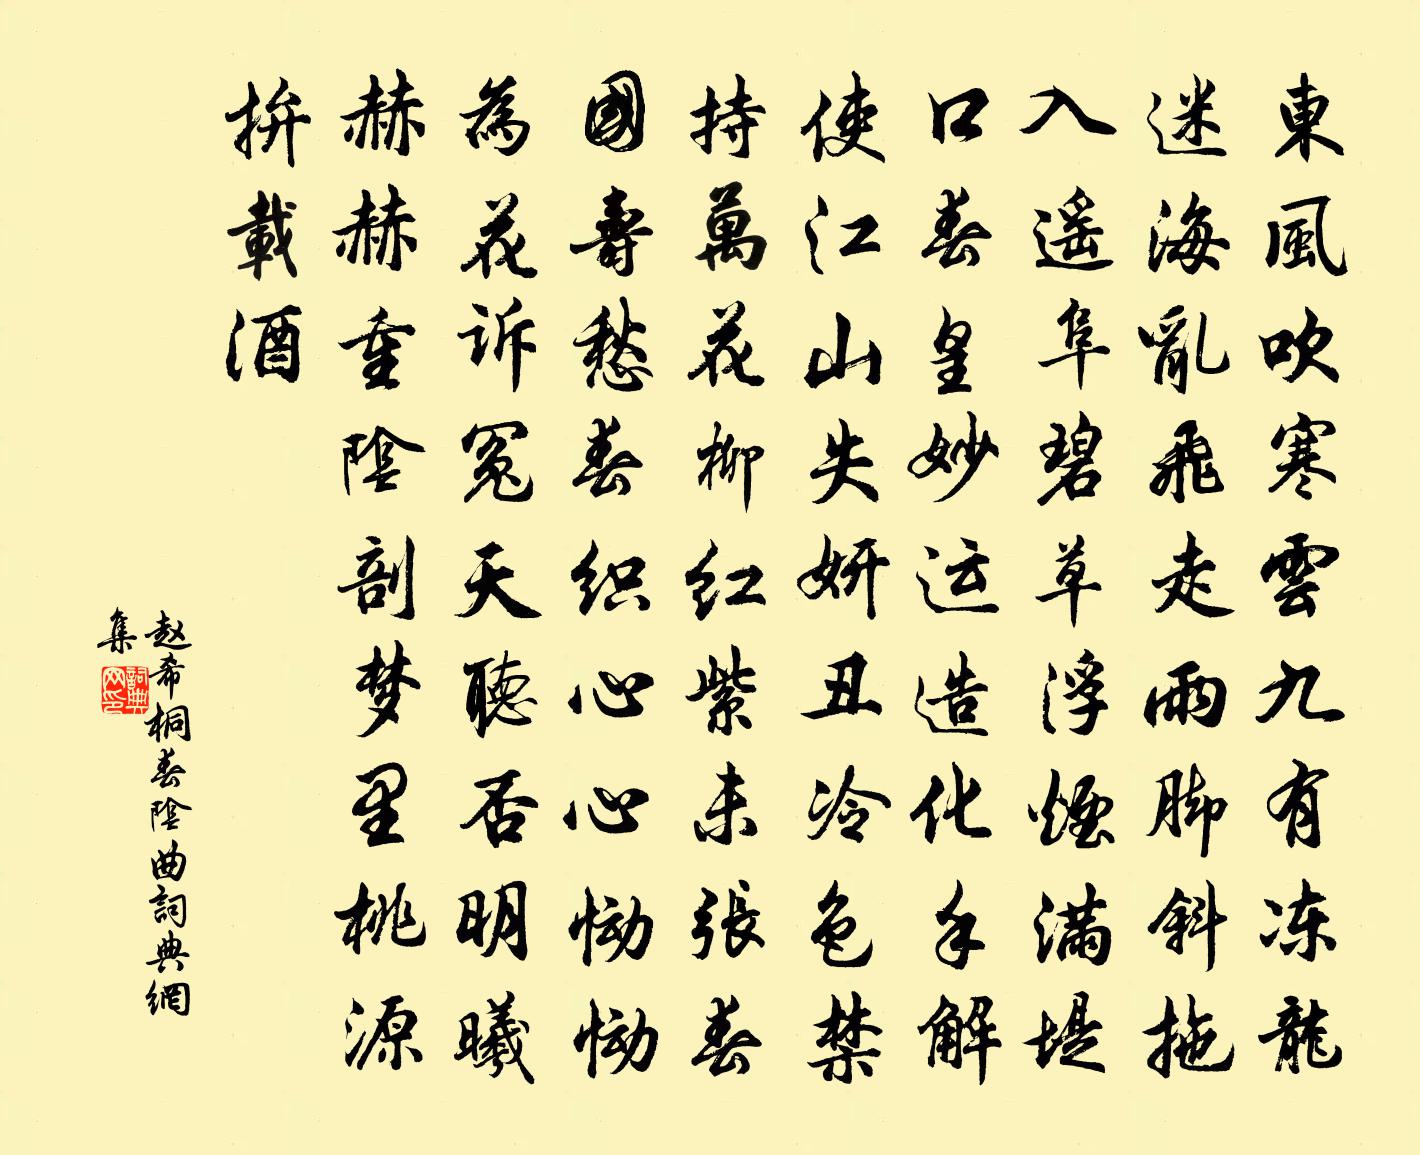 東風吹寒雲九有冻龍
迷海亂飛走雨脚斜拖
入遥阜碧草浮煙满堤
口春皇妙运造化手解
使江山失妍丑冷色禁
持萬花柳红紫未張春
國壽愁春织心心恸恸
為花诉冤天聽否明曦
赫赫重陰剖梦里桃源
拚載酒
赵希桐春陰曲詞典網
集
詞典
网印